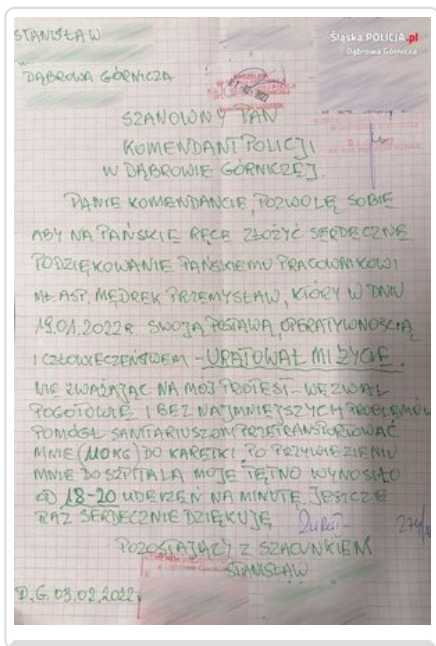 STANISŁAW
Śląska.POLICJA.pl
Dąbrowa Górnicza
DĄBROWA GÓRNICZA
SZANOWNY PAN
KOMENDANT POLICJI
W DĄBROWIE GÓRNICZEJ.
PANIE KOMENDANCIE, POZWOLĘ SOBIE
ABY NA PAŃSKIE RĘCE ZŁOŻYĆ SERDECZNE
PODZIĘKOWANIE PAŃSKIEMU PRACOWNIKOWI
MŁ. ASP. MĘDREK PRZEMYSŁAW, KTÓRY W DNIU
19.01.2022R. SWOJĄ POSTAWĄ, OPERATYWNOŚCIĄ
I CZŁOWIECZEŃSTWEM - URATOWAŁ MI ŻYCIE.
NIE ZWAŻAJĄC NA MÓJ PROTEST - WEZWAŁ
POGOTOWIE I BEZ NAJMNIEJSZYCH PROBLEMÓW
POMÓGŁ SANITARIUSZOM PRZETRANSPORTOWAĆ
MNIE (110KG) DO KARETKI. PO PRZYWIEZIENIU
MNIE DO SZPITALA MOJE TĘTNO WYNOSIŁO
OD 18-20 UDERZEŃ NA MINUTĘ. JESZCZE
RAZ SERDECZNIE DZIĘKUJĘ
POZOSTAJĄCY Z SZACUNKIEM
STANISŁAW
D.G. 03.02.2022